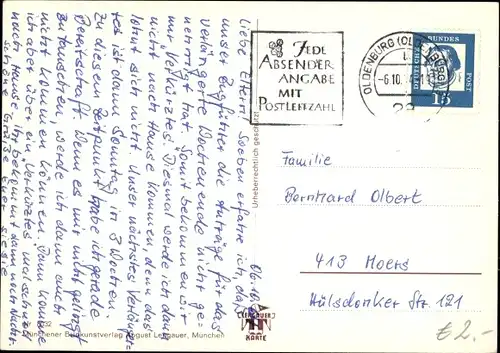 Liebe Eltern! Soeben erfahre ich, daß
unser Zugführer die Anträge für das
verlängerte Wochenende nicht ge-
nehmigt hat. Somit bekommen wir
nur "Verkürztes". Diesmal werde ich dann
nicht nach Hause kommen, denn das
lohnt sich nicht. Unser nächstes Verlänger-
tes ist dann Sonntag in 3 Wochen.
Zu diesem Zeitpunkt habe ich gerade
Bereitschaft. Wenn es mir nicht gelingt
zu tauschen, werde ich dann auch
nicht kommen können. Dann komme
ich aber über ein "Verkürztes" mal schnell
nach Hause. Ihr bekommt dann noch Nachr.
Schöne Grüße Euer
JEDE
ABSENDER
ANGABE
MIT
POSTLEITZAHL
OLDENBURG (OLDENBURG)
-6.10.
DEUTSCHE BUNDESPOST
15
Familie
Bernhard Olbert
413 Moers
Hülsdonker Str. 121
€ 2.-
Urheberrechtlich geschützt
Münchener Buchkunstverlag August Lengauer, München
LENGAUER
KARTE